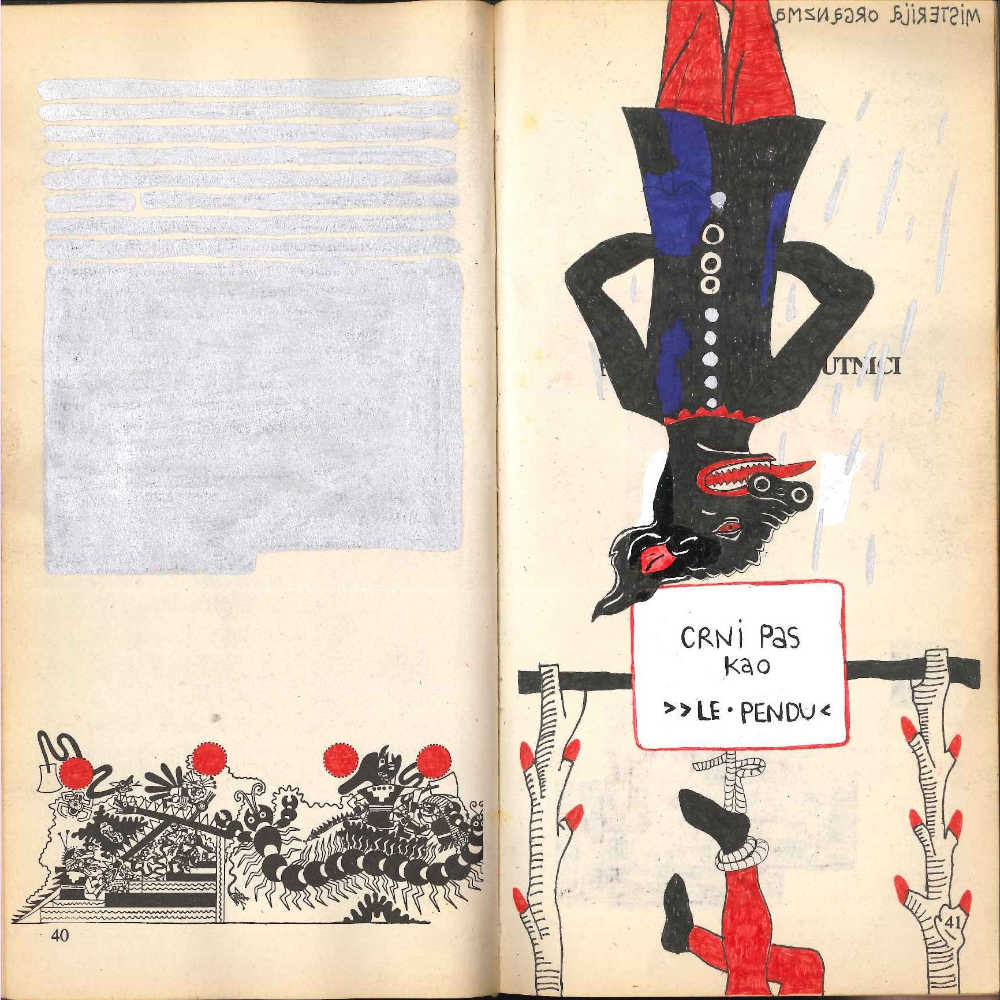 MiSTERijA ORGANZMA
UTNICI
CRNi Pas
kao
>>LE·PENDU<
40
41